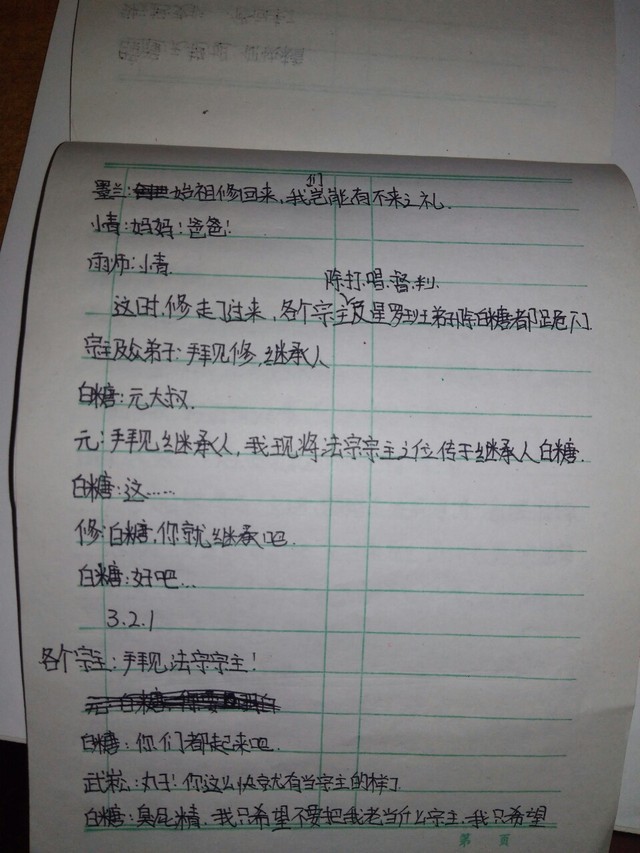 墨兰:始祖修回来,我们岂能有不来之礼.
小青:妈妈!爸爸!
雨师:小青.
除打.唱.督.判.
这时,修走了过来,各个宗主及星罗班班弟子除白糖都跪下
宗主及众弟子:拜见修,继承人
白糖:元大叔.
元:拜见继承人,我现将法宗宗主之位传于继承人白糖.
白糖:这……
修:白糖,你就继承吧.
白糖:好吧…
3.2.1
各个宗主:拜见法宗宗主!
白糖:你们都起来吧.
武崧:丸子!你这么快就有当宗主的样了
白糖:臭屁精.我只希望不要把我老当什么宗主.我只希望
第 页